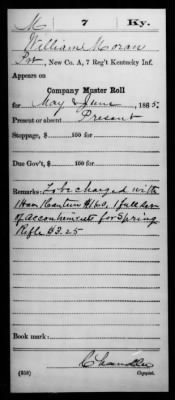 M 7 Ky.
William Moran
Pvt, New Co. A, 7 Reg't Kentucky Inf.
Appears on
Company Muster Roll
for May & June, 1865.
Present or absent Present
Stoppage, $ 100 for
Due Gov't, $ 100 for
Remarks: To be charged with
1 Haver Canteen
of accoutrements for Spring
Rifle $3.25
Book mark:
Chandler
(358) Copyist.